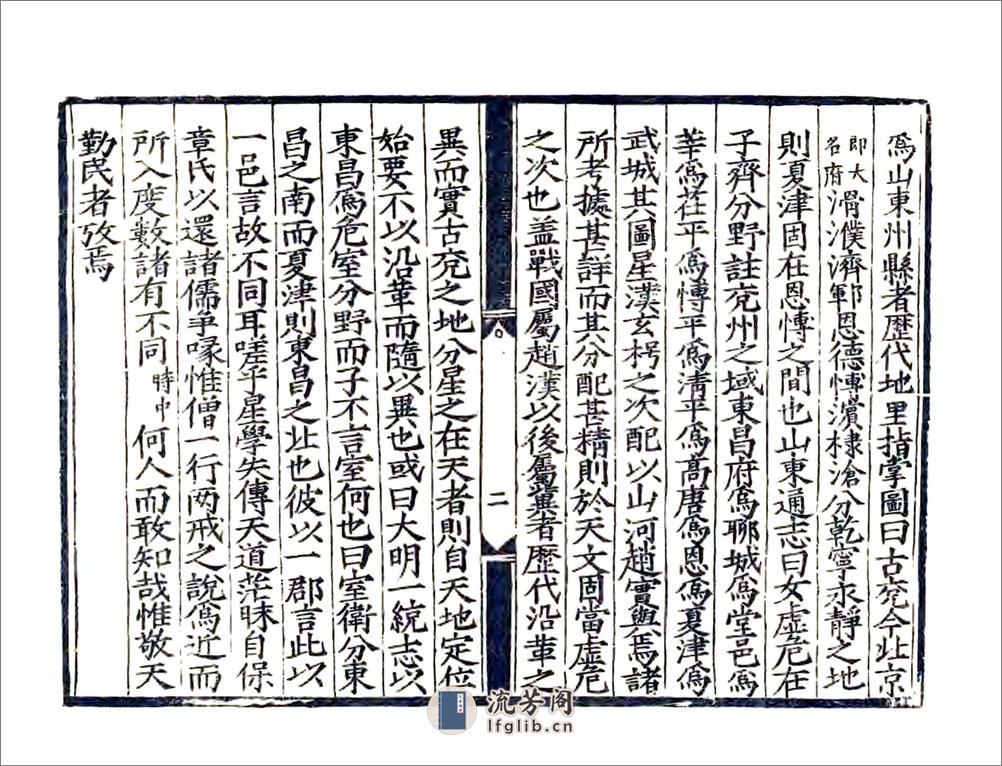 爲山東州縣者歷代地里指掌圖曰古兖今北京
即大名府滑濮濟鄆恩德愽濵棣滄分乾寧永靜之地
則夏津固在恩愽之間也山東通志曰女虚危在
子齊分野註兖州之域東昌府爲聊城爲堂邑爲
莘爲茌平爲愽平爲淸平爲髙唐爲恩爲夏津爲
武城其圖星漢玄枵之次配以山河趙實與焉諸
所考據甚詳而其分配甚精則於天文固當虚危
之次也盖戰國屬趙漢以後屬冀者歷代沿革之
異而實古兖之地分星之在天者則自天地定位
始要不以沿革而隨以異也或曰大明一統志以
東昌爲危室分野而子不言室何也曰室衛分東
昌之南而夏津則東昌之北也彼以一郡言此以
一邑言故不同耳嗟乎星學失傳天道茫昧自保
章氏以還諸儒爭喙惟僧一行两戒之說爲近而
所入度數諸有不同時中何人而敢知哉惟敬天
勤民者攷焉
二
流芳阁
lfglib.cn